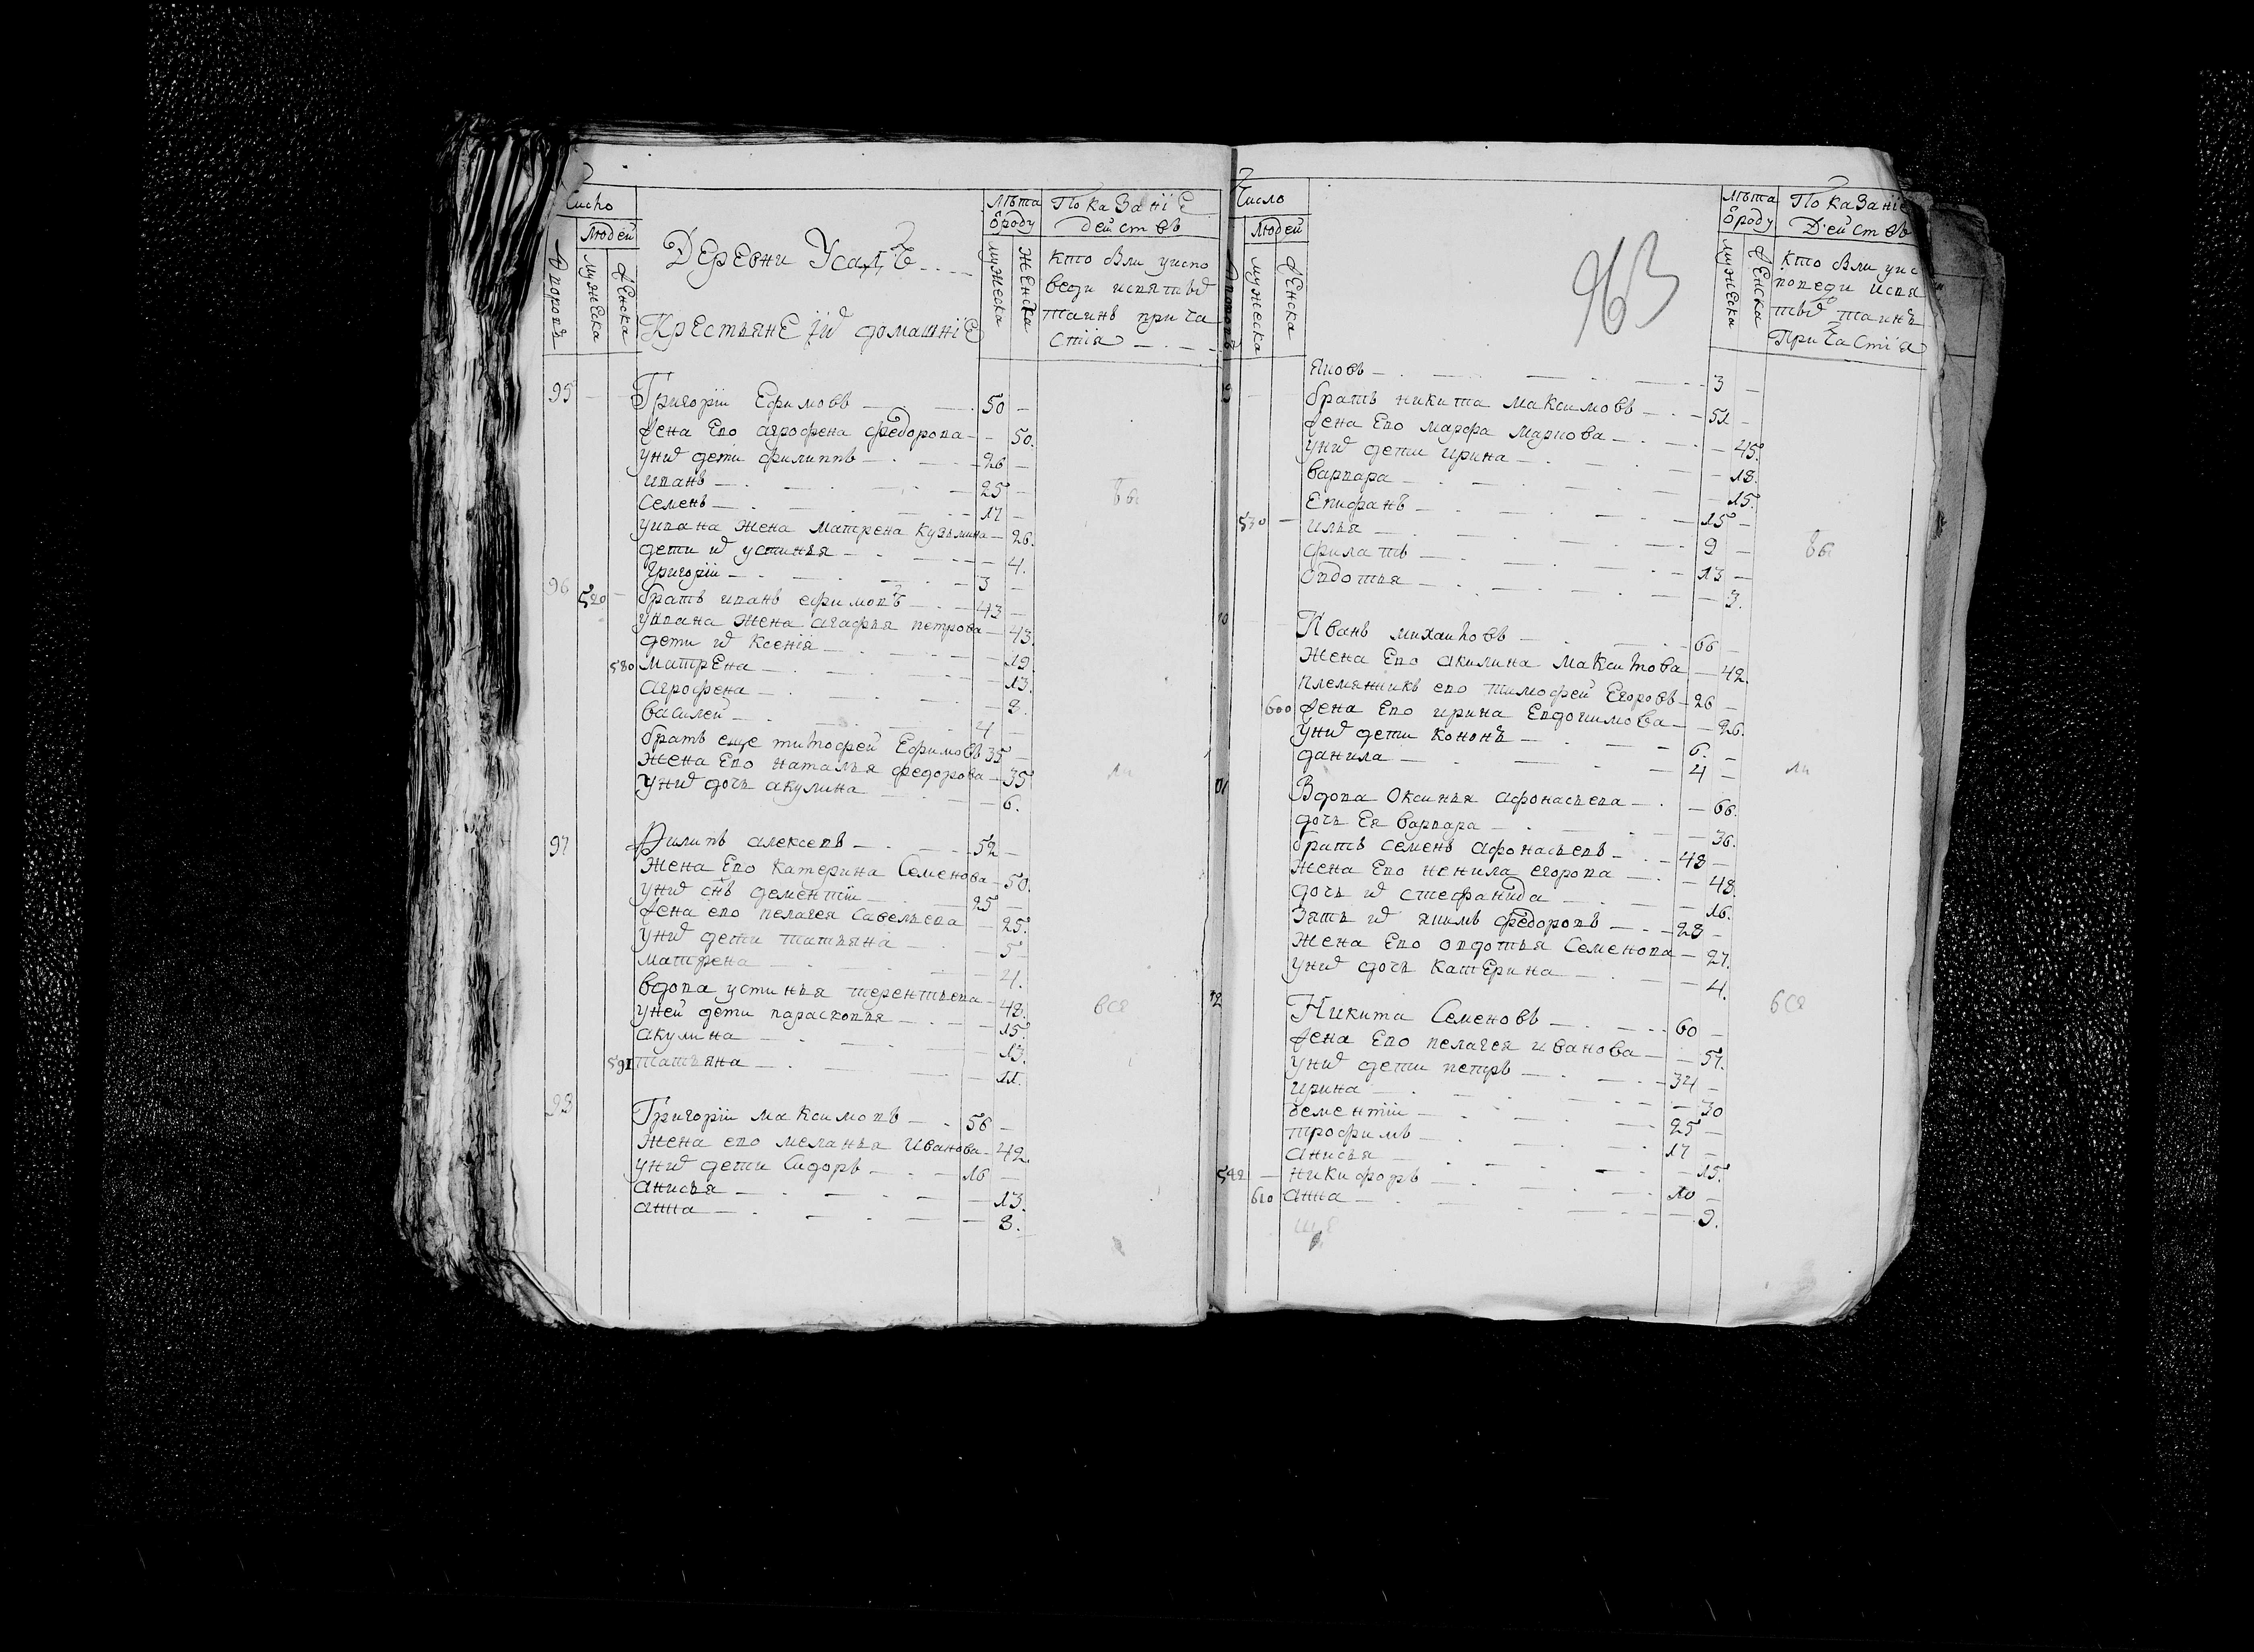 Число
Людей
Дворовъ
мужеска
женска
Деревни Усадъ
Крестьяне их домашніе
Лѣта
ѿроду
мужеска
женска
Показаніе
действъ
кто былъ уиспо
веди исвятых
таинъ прича
стія
95 Григорїи Ефимовъ 50
жена Ево агрофена федорова 50.
уних дети филиппъ 26
иванъ 25
Семенъ 17
уивана жена матрена кузьмина 26.
дети их устинья 4.
григорїи 3
96 520 братъ иванъ ефимовъ 43
уивана жена агафья петрова 43.
дети их Ксенія 19.
580 матрена 13.
агрофена 8.
василей 4
братъ еще тимофей Ефимовъ 35
жена Ево наталья федорова 35
уних дочь акулина 6.
97 Филипъ алексеевъ 52
жена Ево катерина Семенова 50.
уних снъ дементїи 25
жена ево пелагея Савельева 25.
уних дети татьяна 5
матрена 4.
вдова устинья терентьева 48.
уней дети парасковья 15.
акулина 13.
591 татьяна 11.
98 Григорїи максимовъ 56
жена ево меланья Иванова 42.
уних дети Сидоръ 16
анисья 13.
анна 8.
бы
ли
вся
Число
Людей
мужеска
женска
963
Лѣта
ѿроду
мужеска
женска
Показаніе
Действъ
кто былъ уис
поведи исвя
тых таинъ
Причастія
яковъ 3
братъ никита максимовъ 51
жена Ево марфа маркова 45.
уних дети ирина 18.
варвара 15.
Епифанъ 15
530 илья 9
филатъ 13
овдотья 3.
Иванъ михаиловъ 66
жена Ево акилина максимова 42.
племянникъ ево тимофей Егоровъ 26
600 жена Ево ирина Евдокимова 26.
уних дети кононъ 6.
данила 4
Вдова Оксинья афонасьева 66.
дочь Ея варвара 36.
братъ семенъ афонасьевъ 48
жена Ево ненила егорова 48.
дочь их стефанида 16.
Зять их якимъ федоровъ 28
жена Ево овдотья Семенова 27.
уних дочь катерина 4.
Никита Семеновъ 60
жена Ево пелагея иванова 57.
уних дети петръ 34
ирина 30
дементїи 25
трофимъ 17
анисья 15.
542 никифоръ 10
610 анна 9.
бы
ли
вся